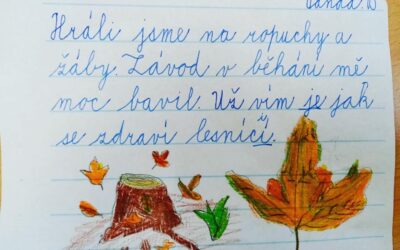 Hráli jsme na ropuchy a
žáby. Závod v běhání mě
moc bavil. Už vím je jak
se zdraví lesníci.